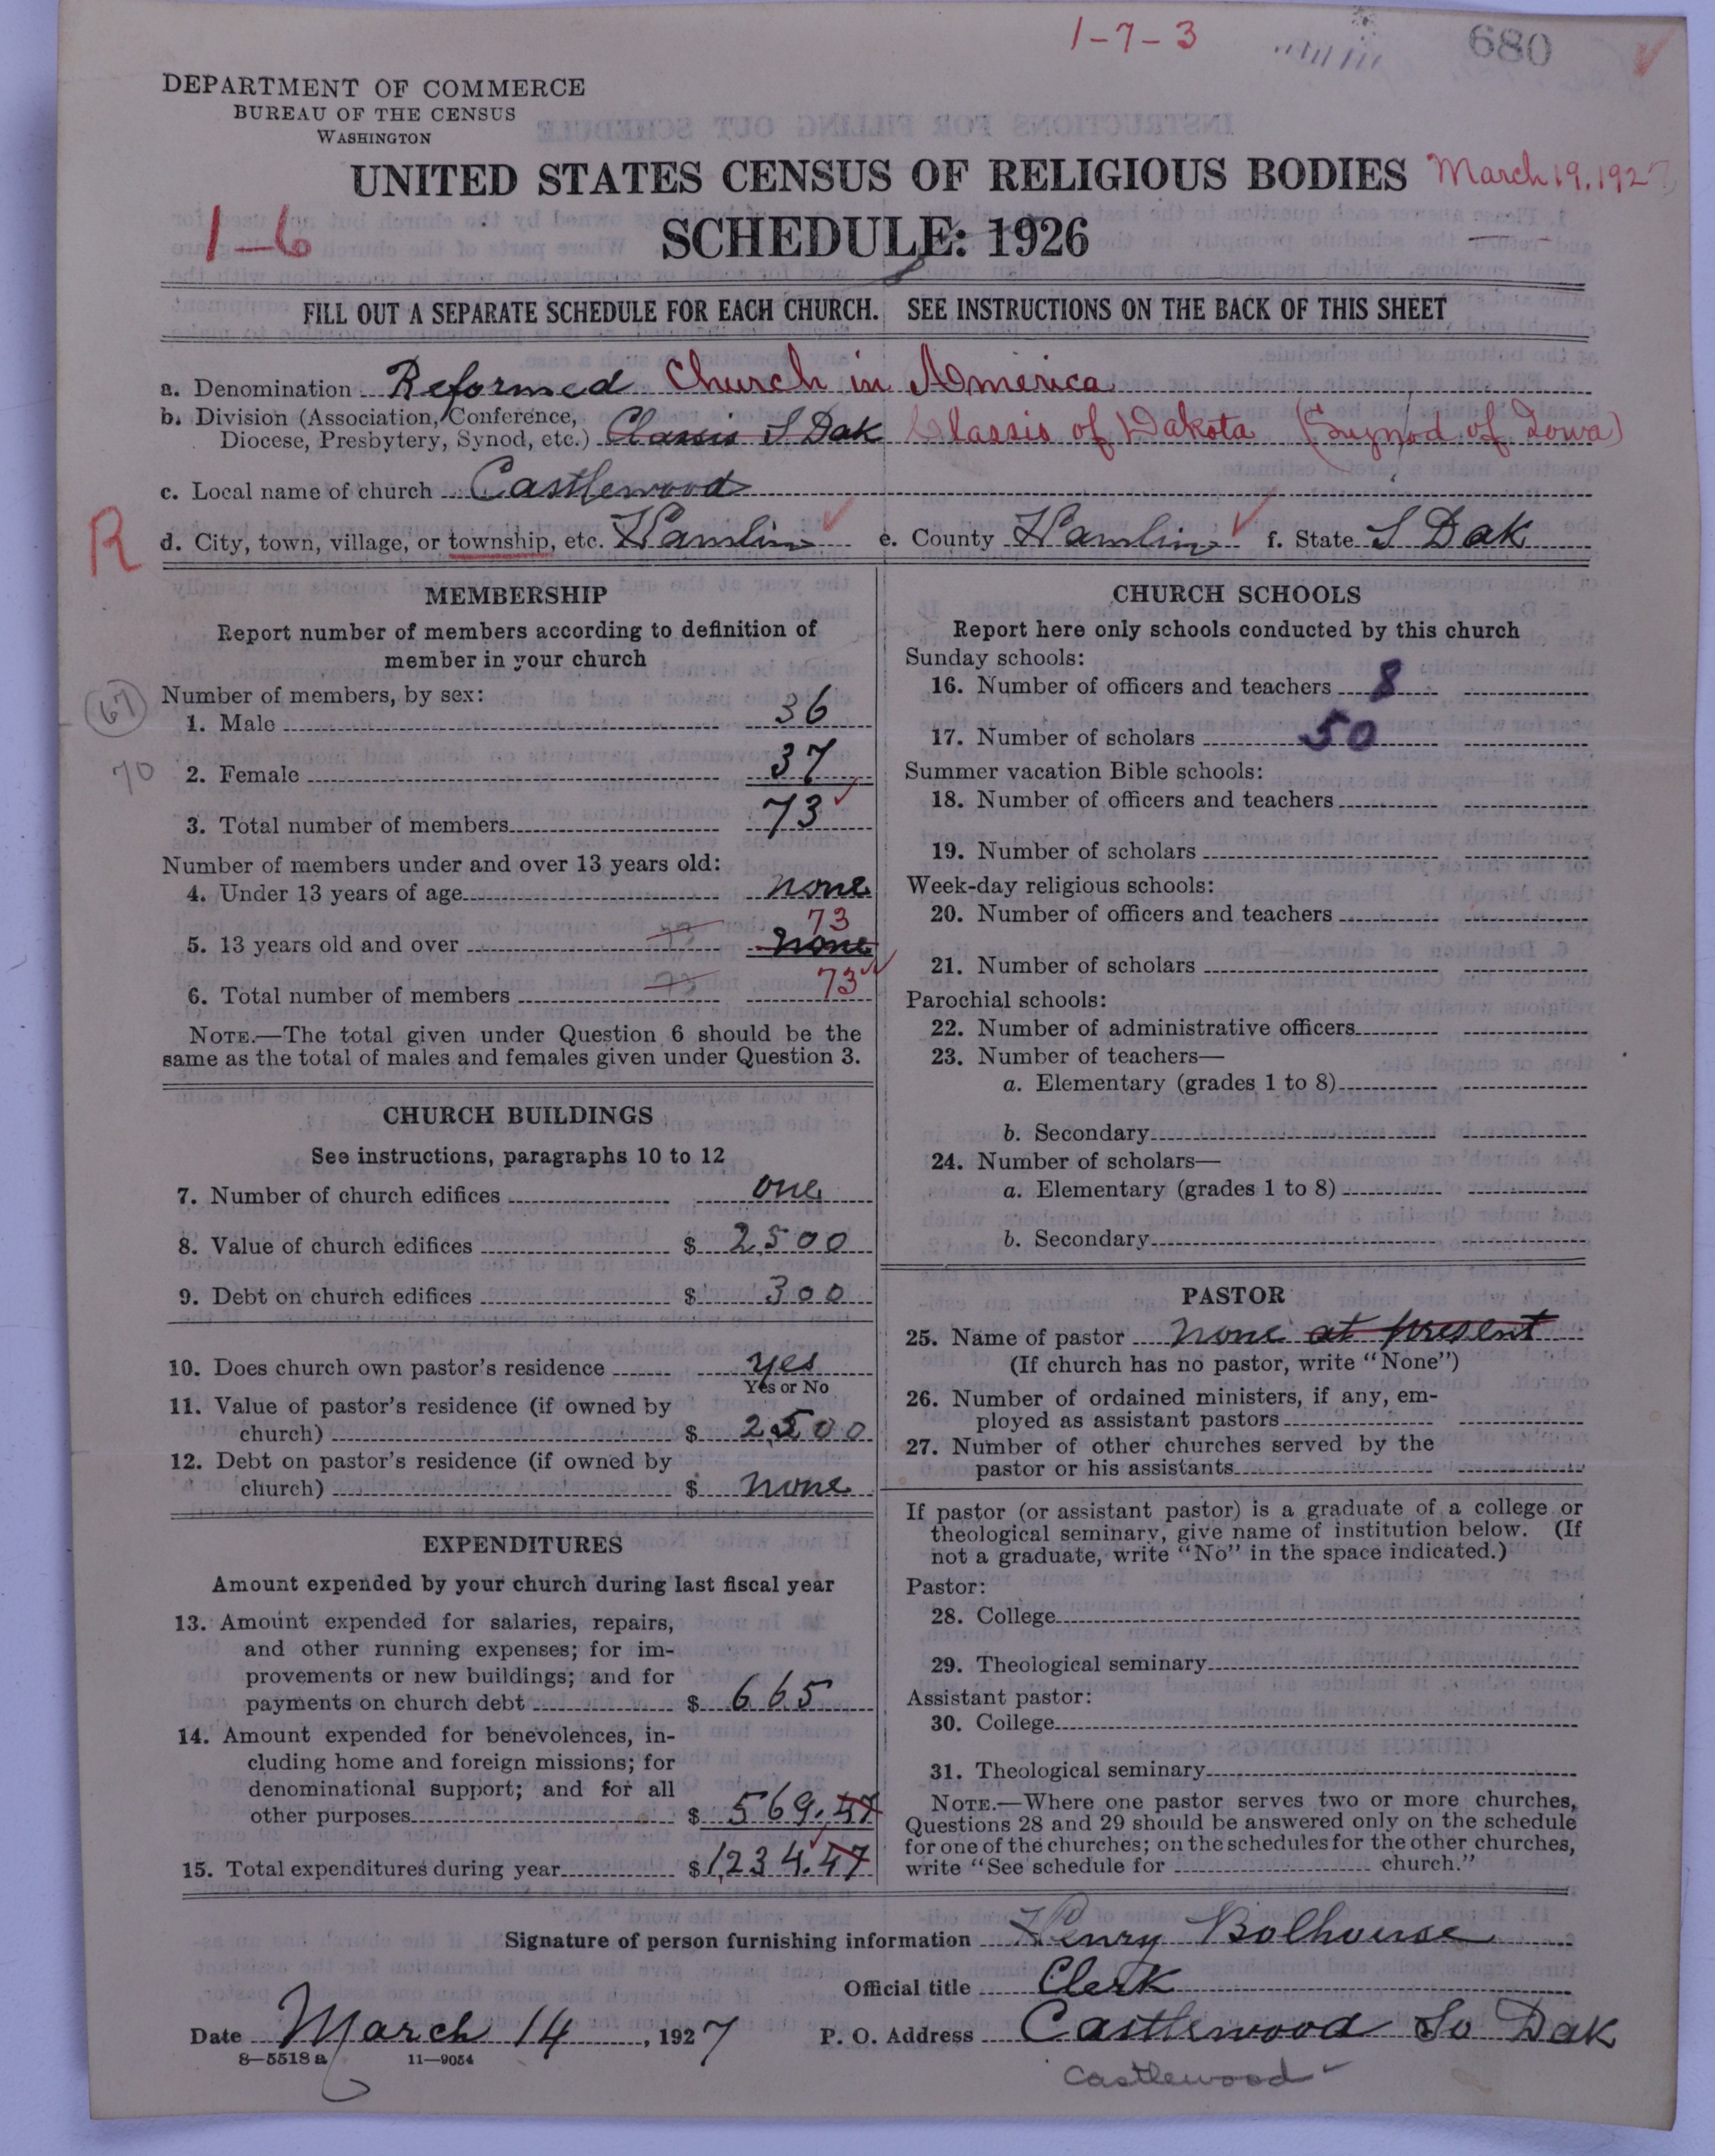 1-7-3
680
DEPARTMENT OF COMMERCE
BUREAU OF THE CENSUS
WASHINGTON
UNITED STATES CENSUS OF RELIGIOUS BODIES March 19, 1927
1-6
SCHEDULE: 1926
FILL OUT A SEPARATE SCHEDULE FOR EACH CHURCH. SEE INSTRUCTIONS ON THE BACK OF THIS SHEET
a. Denomination Reformed Church in America
b. Division (Association, Conference,
Diocese, Presbytery, Synod, etc.) Classis S Dak Classis of Dakota (Synod of Iowa)
c. Local name of church Castlewood
R
d. City, town, village, or township, etc. Hamlin e. County Hamlin f. State S Dak
MEMBERSHIP
Report number of members according to definition of
member in your church
Number of members, by sex:
67
1. Male 36
70
2. Female 37
3. Total number of members 73
Number of members under and over 13 years old:
4. Under 13 years of age none
73
5. 13 years old and over 73 none
6. Total number of members 73 73
NOTE.—The total given under Question 6 should be the
same as the total of males and females given under Question 3.
CHURCH BUILDINGS
See instructions, paragraphs 10 to 12
7. Number of church edifices one
8. Value of church edifices $ 2500
9. Debt on church edifices $ 300
10. Does church own pastor's residence yes
Yes or No
11. Value of pastor's residence (if owned by
church) $ 2500
12. Debt on pastor's residence (if owned by
church) $ none
EXPENDITURES
Amount expended by your church during last fiscal year
13. Amount expended for salaries, repairs,
and other running expenses; for im-
provements or new buildings; and for
payments on church debt $ 665
14. Amount expended for benevolences, in-
cluding home and foreign missions; for
denominational support; and for all
other purposes $ 569.47
15. Total expenditures during year $ 1,234.47
CHURCH SCHOOLS
Report here only schools conducted by this church
Sunday schools:
16. Number of officers and teachers 8
17. Number of scholars 50
Summer vacation Bible schools:
18. Number of officers and teachers
19. Number of scholars
Week-day religious schools:
20. Number of officers and teachers
21. Number of scholars
Parochial schools:
22. Number of administrative officers
23. Number of teachers—
a. Elementary (grades 1 to 8)
b. Secondary
24. Number of scholars—
a. Elementary (grades 1 to 8)
b. Secondary
PASTOR
25. Name of pastor none at present
(If church has no pastor, write "None")
26. Number of ordained ministers, if any, em-
ployed as assistant pastors
27. Number of other churches served by the
pastor or his assistants
If pastor (or assistant pastor) is a graduate of a college or
theological seminary, give name of institution below. (If
not a graduate, write "No" in the space indicated.)
Pastor:
28. College
29. Theological seminary
Assistant pastor:
30. College
31. Theological seminary
NOTE.—Where one pastor serves two or more churches,
Questions 28 and 29 should be answered only on the schedule
for one of the churches; on the schedules for the other churches,
write "See schedule for church."
Signature of person furnishing information Henry Bolhouse
Official title Clerk
Date March 14, 1927 P. O. Address Castlewood So Dak
8—5518 a 11—9054
Castlewood